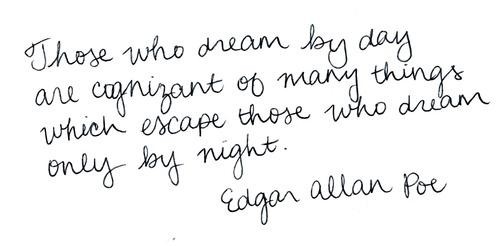 Those who dream by day
are cognizant of many things
which escape those who dream
only by night.
Edgar Allan Poe